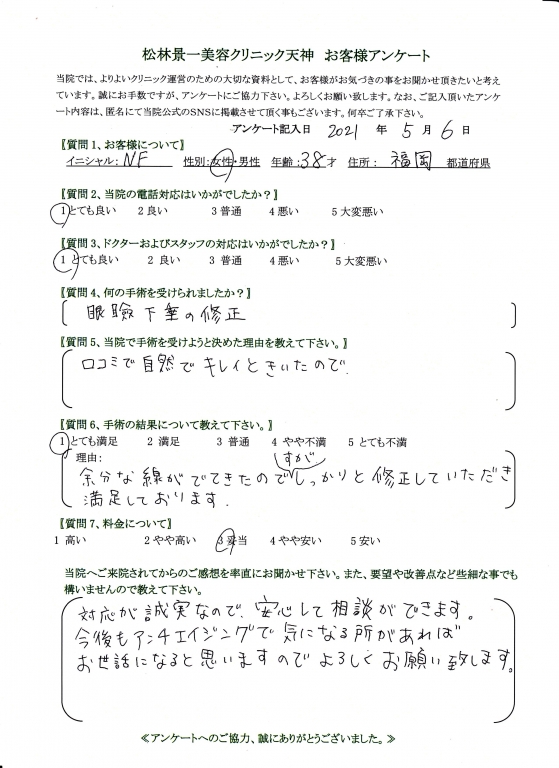 松林景一美容クリニック天神　お客様アンケート
当院では、よりよいクリニック運営のための大切な資料として、お客様がお気づきの事をお聞かせ頂きたいと考え
ています。誠にお手数ですが、アンケートにご協力下さい。よろしくお願い致します。なお、ご記入頂いたアンケ
ート内容は、匿名にて当院公式のSNSに掲載させて頂く事もございます。何卒ご了承下さい。
アンケート記入日　2021　年　5　月　6　日
〖質問1、お客様について〗
イニシャル：NF　性別：女性・男性　年齢：38才　住所：　福岡　都道府県
〖質問2、当院の電話対応はいかがでしたか？〗
1とても良い　2良い　3普通　4悪い　5大変悪い
〖質問3、ドクターおよびスタッフの対応はいかがでしたか？〗
1とても良い　2 良い　3 普通　4悪い　5大変悪い
〖質問4、何の手術を受けられましたか？〗
眼瞼下垂の修正
〖質問5、当院で手術を受けようと決めた理由を教えて下さい。〗
口コミで自然でキレイときいたので.
〖質問6、手術の結果について教えて下さい。〗
1とても満足　2 満足　3 普通　4 やや不満　5 とても不満
理由：　すが
余分な線がでてきたのでしっかりと修正していただき
満足しております.
〖質問7、料金について〗
1 高い　2やや高い　3妥当　4やや安い　5安い
当院へご来院されてからのご感想を率直にお聞かせ下さい。また、要望や改善点など些細な事でも
構いませんので教えて下さい。
対応が誠実なので、安心して相談ができます。
今後もアンチエイジングで気になる所があれば
お世話になると思いますのでよろしくお願い致します。
≪アンケートへのご協力、誠にありがとうございました。≫